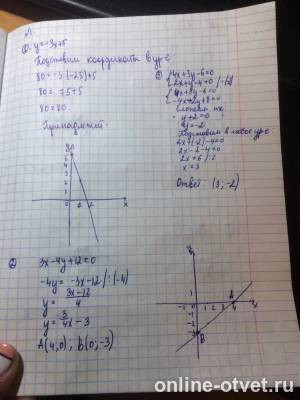 1.
y=-3x+5
Подставим координаты в ур-е
80=-3·(-25)+5
80=75+5
80=80
Принадлежит.
y
x
3) 4x+3y-6=0
2x+y-4=0 /·(-2)
4x+3y-6=0
-4x-2y+8=0
y+2=0
y=-2
Подставим в любое ур-е
2x+(-2)-4=0
2x-2-4=0
2x=6 /:2
x=3
Ответ: (3;-2)
2) 3x-4y+12=0
-4y=-3x-12 /:(-4)
y=3x-12/4
y=3/4x-3
A(4;0); B(0;-3)
y
1
0 1 2 3 4
A
x
-1
-2
-3
B
online-otvet.ru